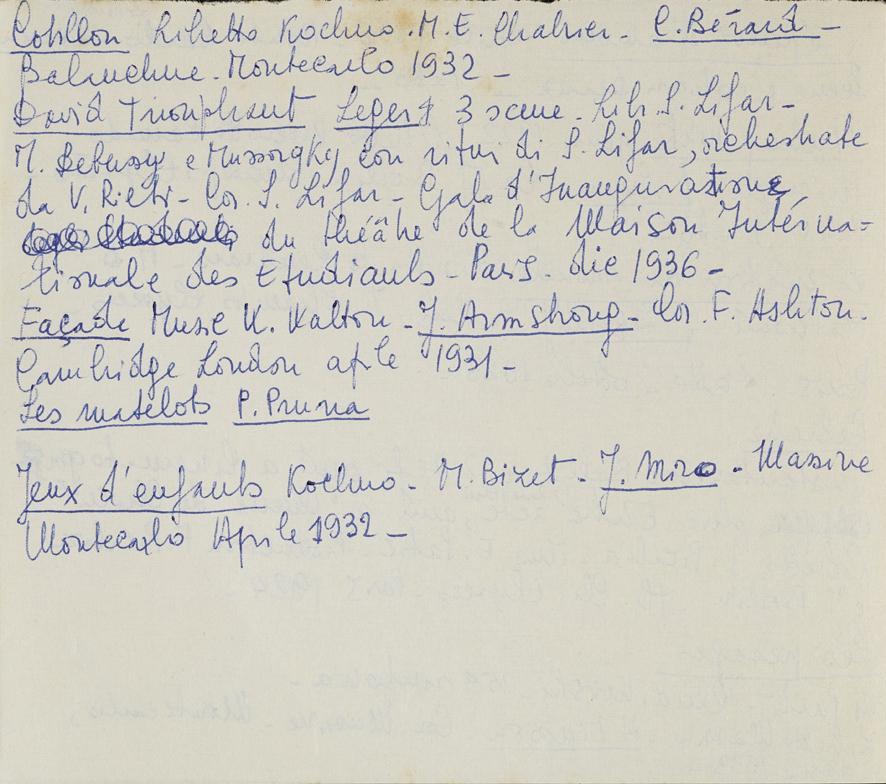 Cotillon Libretto Kochno. M. E. Chabrier - C. Bérard -
Balanchine. Montecarlo 1932 -
David Trionphant Leger 3 scene. Libr. S. Lifar -
M. Debussy e Mussorgky con ritmi di S. Lifar, orchestrate
da V. Rieti - Cor. S. Lifar - Gala d'Inauguratione
du théâtre de la Maison Intérna=
tionale des Etudiants - Paris. dic 1936 -
Façade Music W. Walton - J. Armstrong - Cor. F. Ashton.
Cambridge London aprile 1931 -
Les matelots P. Pruna
Jeux d'enfants Kochno - M. Bizet - J. Miro - Massine
Montecarlo Aprile 1932 -